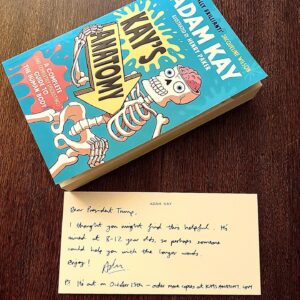 BRILLIANT!' JACQUELINE WILSON
ADAM KAY
ILLUSTRATED BY HENRY PAKER
KAY'S
ANATOMY
A COMPLETE
GUIDE TO
THE HUMAN BODY
ADAM KAY
Dear President Trump,
I thought you might find this helpful. It's
aimed at 8-12 year olds, so perhaps someone
could help you with the longer words.
Enjoy! Adam
PS It's out on October 15th - order more copies at KAYSANATOMY.COM